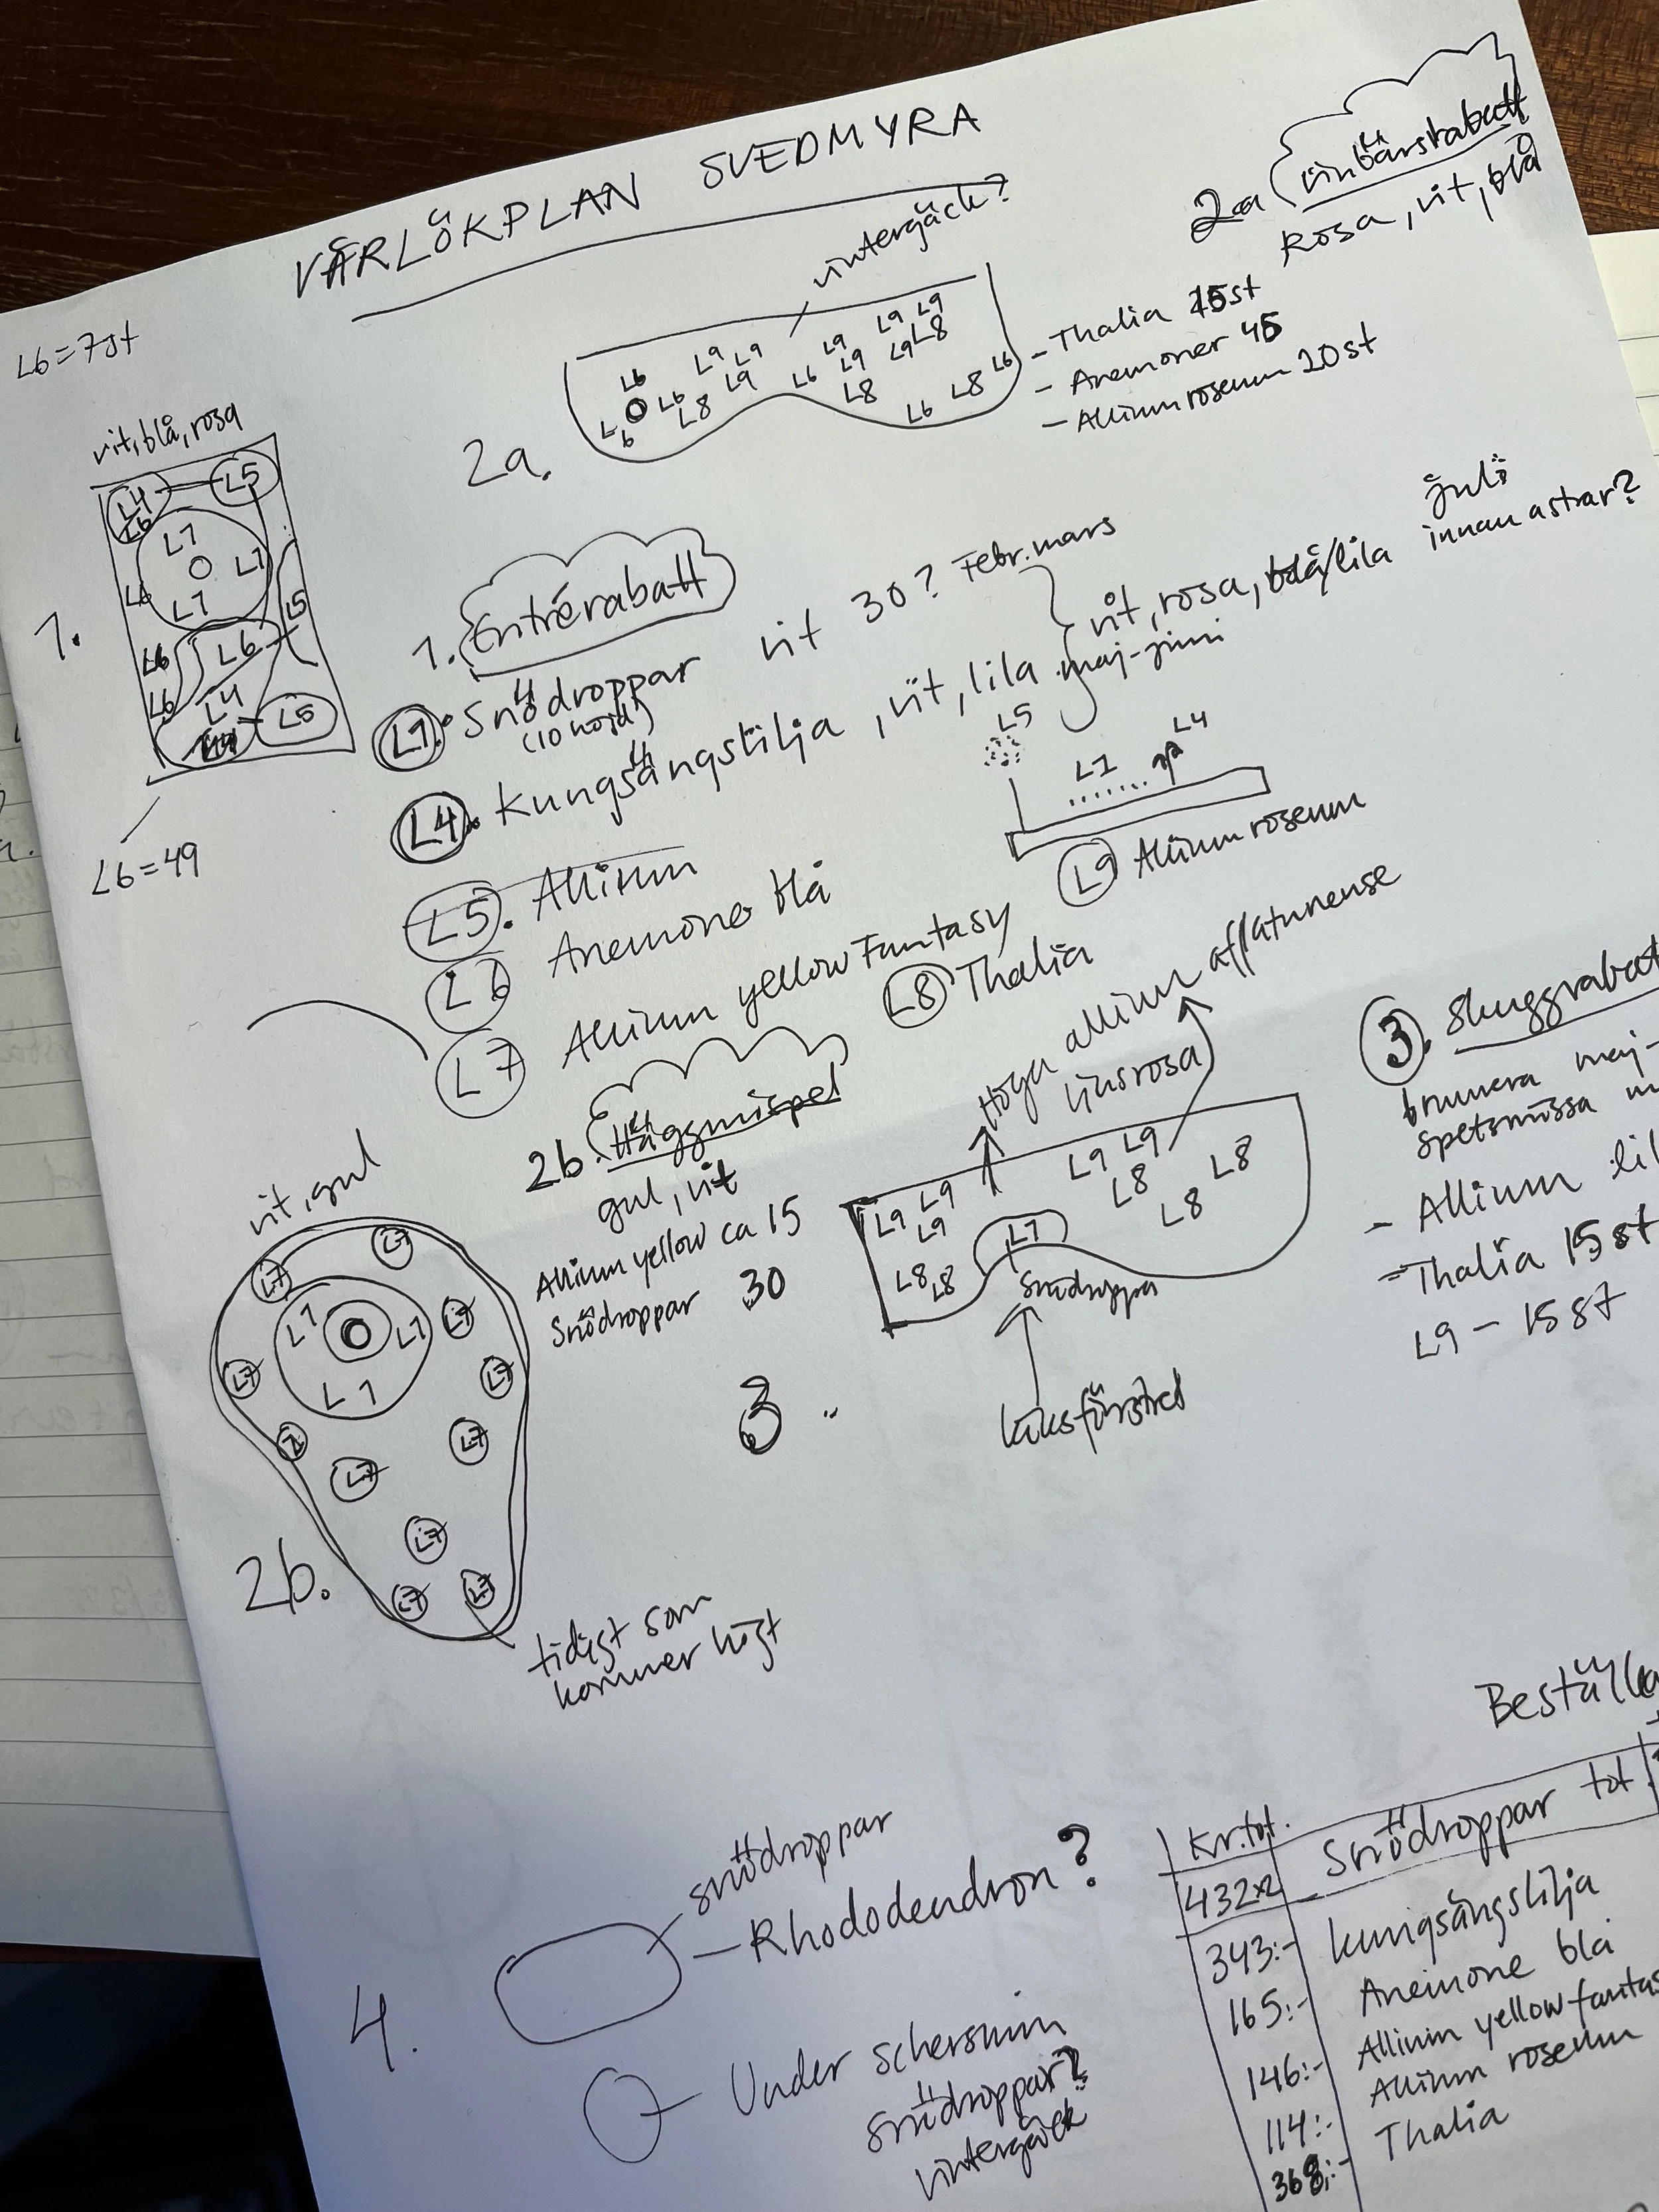 VÅRLÖKPLAN SVEDMYRA
L6=7st
vintergäck?
2a vinbärsrabatt
Rosa, vit, blå
L9 L9
L9 L9 L9 L9 L8
L6 L9 L9 L9
L6 L8 L6 L8 L8 L6
L6 L6
2a.
- Thalia 15st
- Anemoner 45
- Allium roseum 20st
vit, blå, rosa
L4 L5
L6
L1
L1
L6 L1
L5
L6 L6
L6 L4
L5
1.
L6=49
1. Entrérabatt
L1. Snödroppar vit 30? Febr.mars
(10 höjd)
L4. Kungsängslilja, vit, lila maj-juni
vit, rosa, blå/lila
juli
innan astrar?
L5
L1 L4
L5. Allium
L6 Anemone blå
L7 Allium yellow Fantasy
L8 Thalia
L9 Allium roseum
2b. Häggmispel
gul, vit
Allium yellow ca 15
Snödroppar 30
vit, gul
L7 L7
L1 L1 L7
L7 L1 L7
L7
L7
L7
L7 L7
2b.
tidigt som
kommer högt
3.
Höga allium aflatunense
ljusrosa
L9 L9 L9 L9
L9 L8 L8
L8 L8 L1 L8
Snödroppa
3. Skuggrabat
brunnera maj-
spetsmössa m
- Allium lil
- Thalia 15st
L9 - 15st
4.
snödroppar
- Rhododendron?
- Under schersmin
snödroppar?
vintergäck
Beställa
Kr.tot. Snödroppar tot
432x2
343:- Kungsängslilja
165:- Anemone blå
146:- Allium yellow fantas
114:- Allium roseum
368:- Thalia